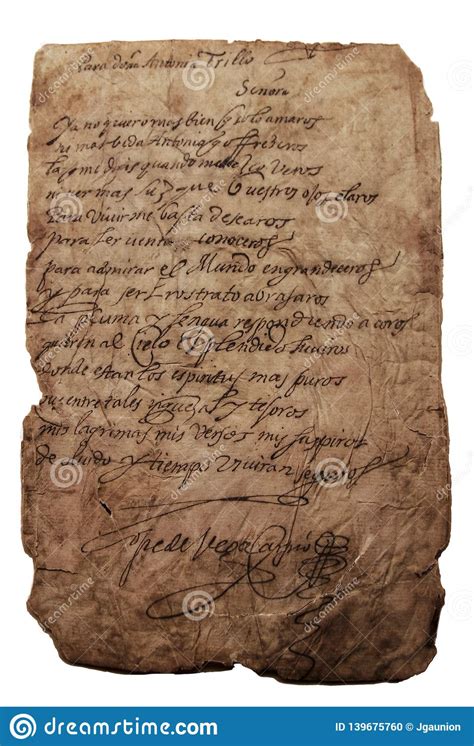 Para doña Antonia Trillo
Señora
Ya no quiero mas bien q solo amaros
ni mas bida Antonia q ofreceros
la q me dais quando me veros
ni ver mas luz que Vuestros ojos claros
Para Vivir me basta desearos
para ser conoceros
para admirar el Mundo engrandeceros
y para ser abrasaros
La pluma y lengua respondiendo a coros
al Cielo Esplendido subiros
donde estan los espiritus mas puros
entre tales y tesoros
mis lagrimas mis versos mis
de olvido y tiempo viviran seguros
Lope de Vega Carpio
dreamstime
dreamstime.com
ID 139675760 © Jgaunion